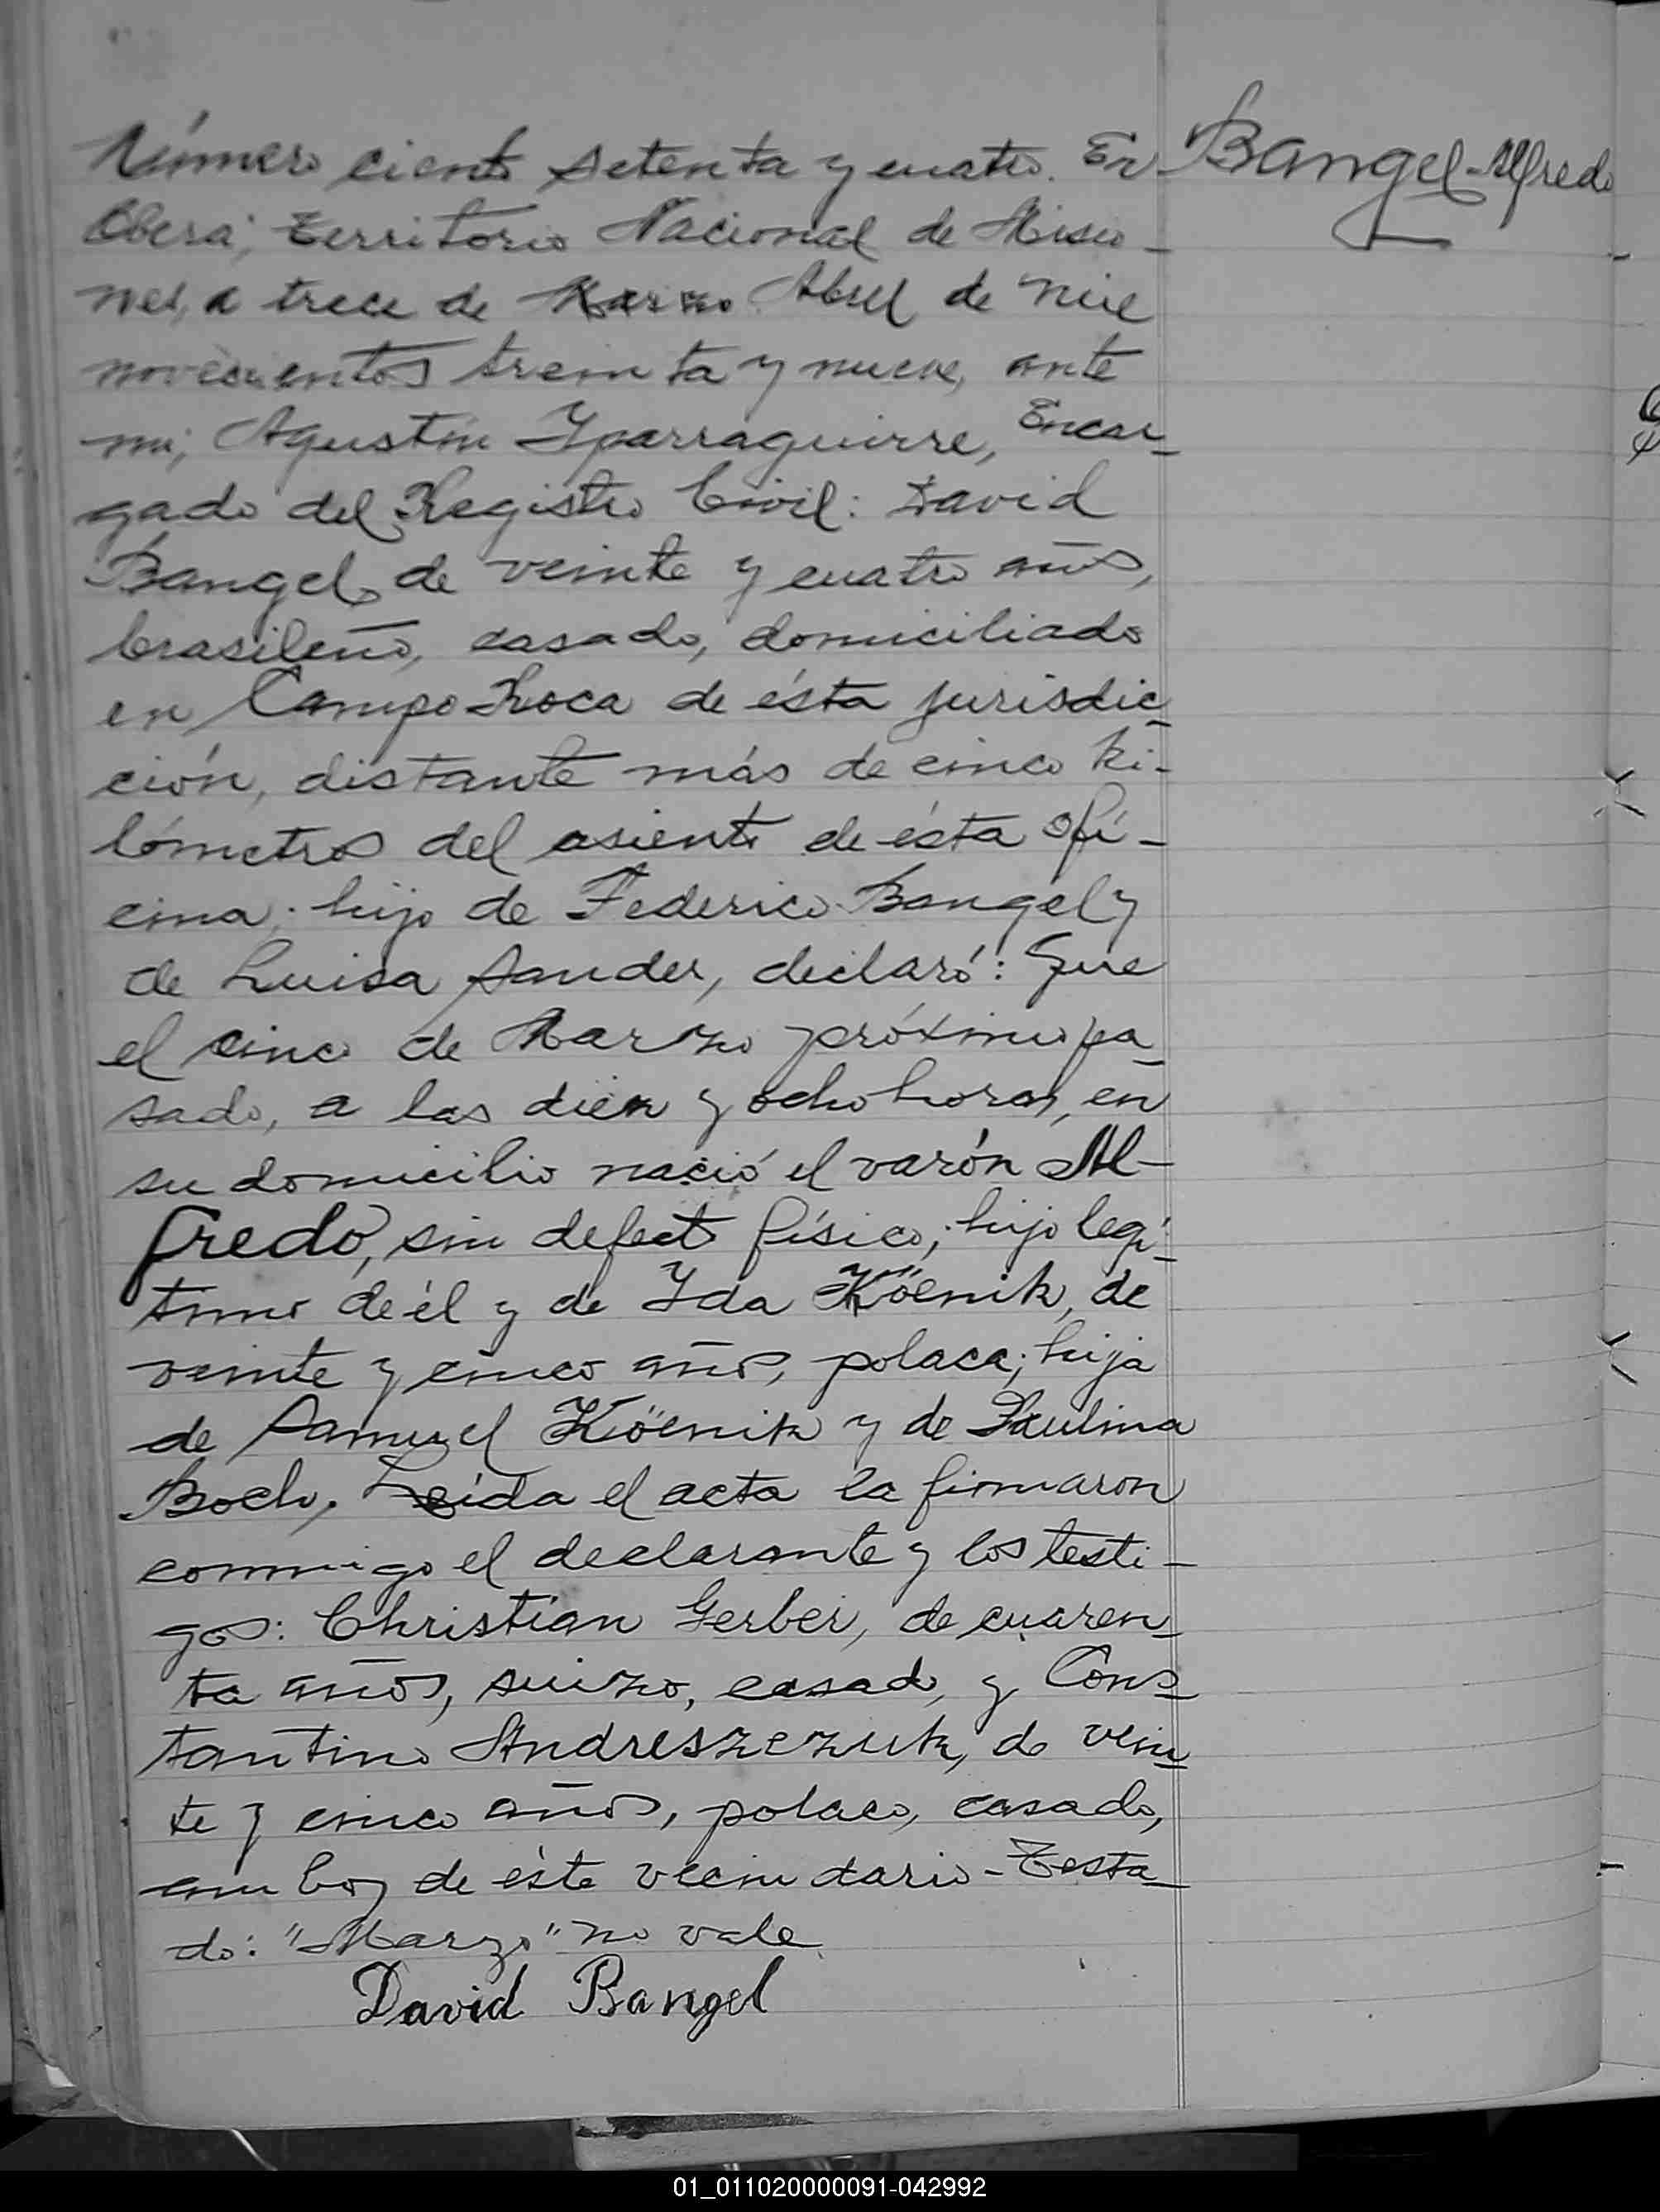 Número ciento setenta y cuatro. En
Oberá, Territorio Nacional de Misio-
nes, a trece de Marzo Abril de mil
novecientos treinta y nueve, ante
mi, Agustín Yparraguirre, Encar-
gado del Registro Civil: David
Bangel, de veinte y cuatro años,
brasileño, casado, domiciliado
en Campo Roca de ésta jurisdic-
ción, distante más de cinco ki-
lómetros del asiento de ésta ofi-
cina; hijo de Federico Bangel y
de Luisa Sander, declaró: Que
el cinco de Marzo próximo pa-
sado, a las diez y ocho horas, en
su domicilio nació el varón Al-
fredo, sin defecto físico; hijo legí-
timo de él y de Yda Köenik, de
veinte y cinco años, polaca; hija
de Samuel Köenik y de Paulina
Boch. Leída el acta la firmaron
conmigo el declarante y los testi-
gos: Christian Gerber, de cuaren-
ta años, suizo, casado, y Cons-
tantino Andreszezuk, de vein-
te y cinco años, polaco, casado,
ambos de éste vecindario - Testa-
do: "Marzo" no vale
David Bangel
Bangel - Alfredo
01_011020000091-042992